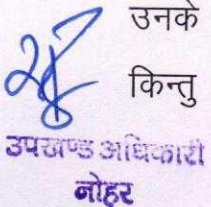 उनके
किन्तु
उपखण्ड अधिकारी
नोहर